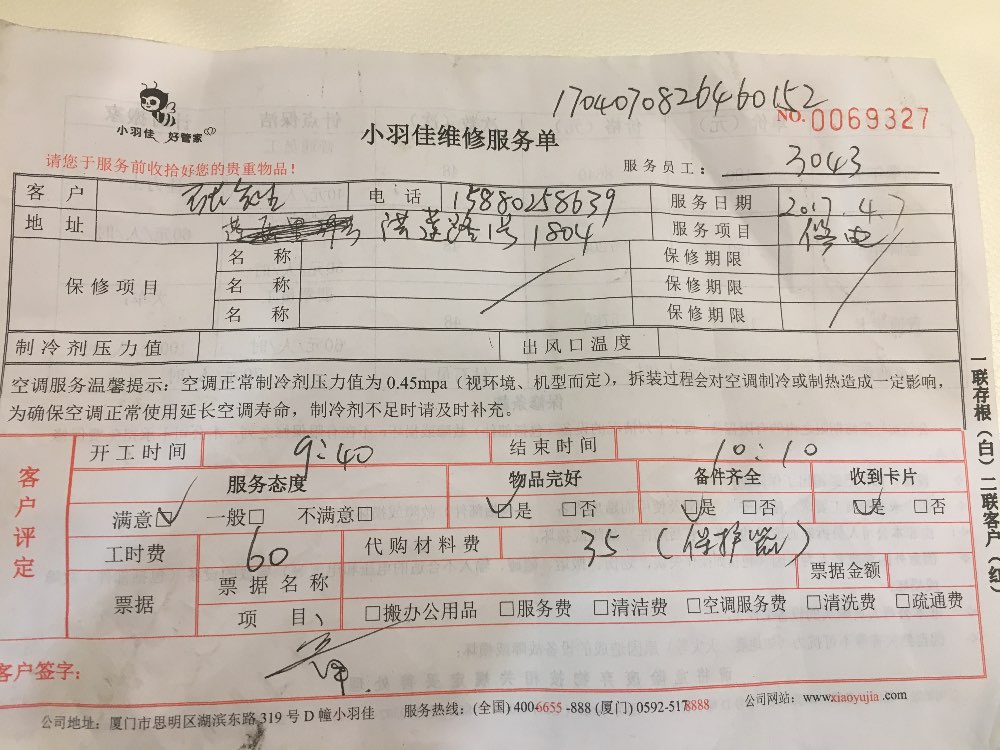 1704070826460152
小羽佳 好管家
小羽佳维修服务单
NO. 0069327
请您于服务前收拾好您的贵重物品！
服务员工： 3043
客 户 电 话 15880258639 服务日期 2017.4.7
地 址 洪莲路1号1804 服务项目 修电
保修项目 名 称 保修期限
名 称 保修期限
名 称 保修期限
制冷剂压力值 出风口温度
空调服务温馨提示：空调正常制冷剂压力值为 0.45mpa（视环境、机型而定），拆装过程会对空调制冷或制热造成一定影响，
为确保空调正常使用延长空调寿命，制冷剂不足时请及时补充。
一联存根（白）二联客户（红）
客户评定
开工时间 9:40 结束时间 10:10
服务态度 物品完好 备件齐全 收到卡片
满意☑ 一般□ 不满意□ ☑是 □否 ☑是 □否 ☑是 □否
工时费 60 代购材料费 35（保护器）
票据 票据名称 票据金额
项 目、 □搬办公用品 □服务费 □清洁费 □空调服务费 □清洗费 □疏通费
客户签字：
公司地址：厦门市思明区湖滨东路 319 号 D 幢小羽佳 服务热线：(全国) 400-6655-888 (厦门) 0592-5178888 公司网站：www.xiaoyujia.com